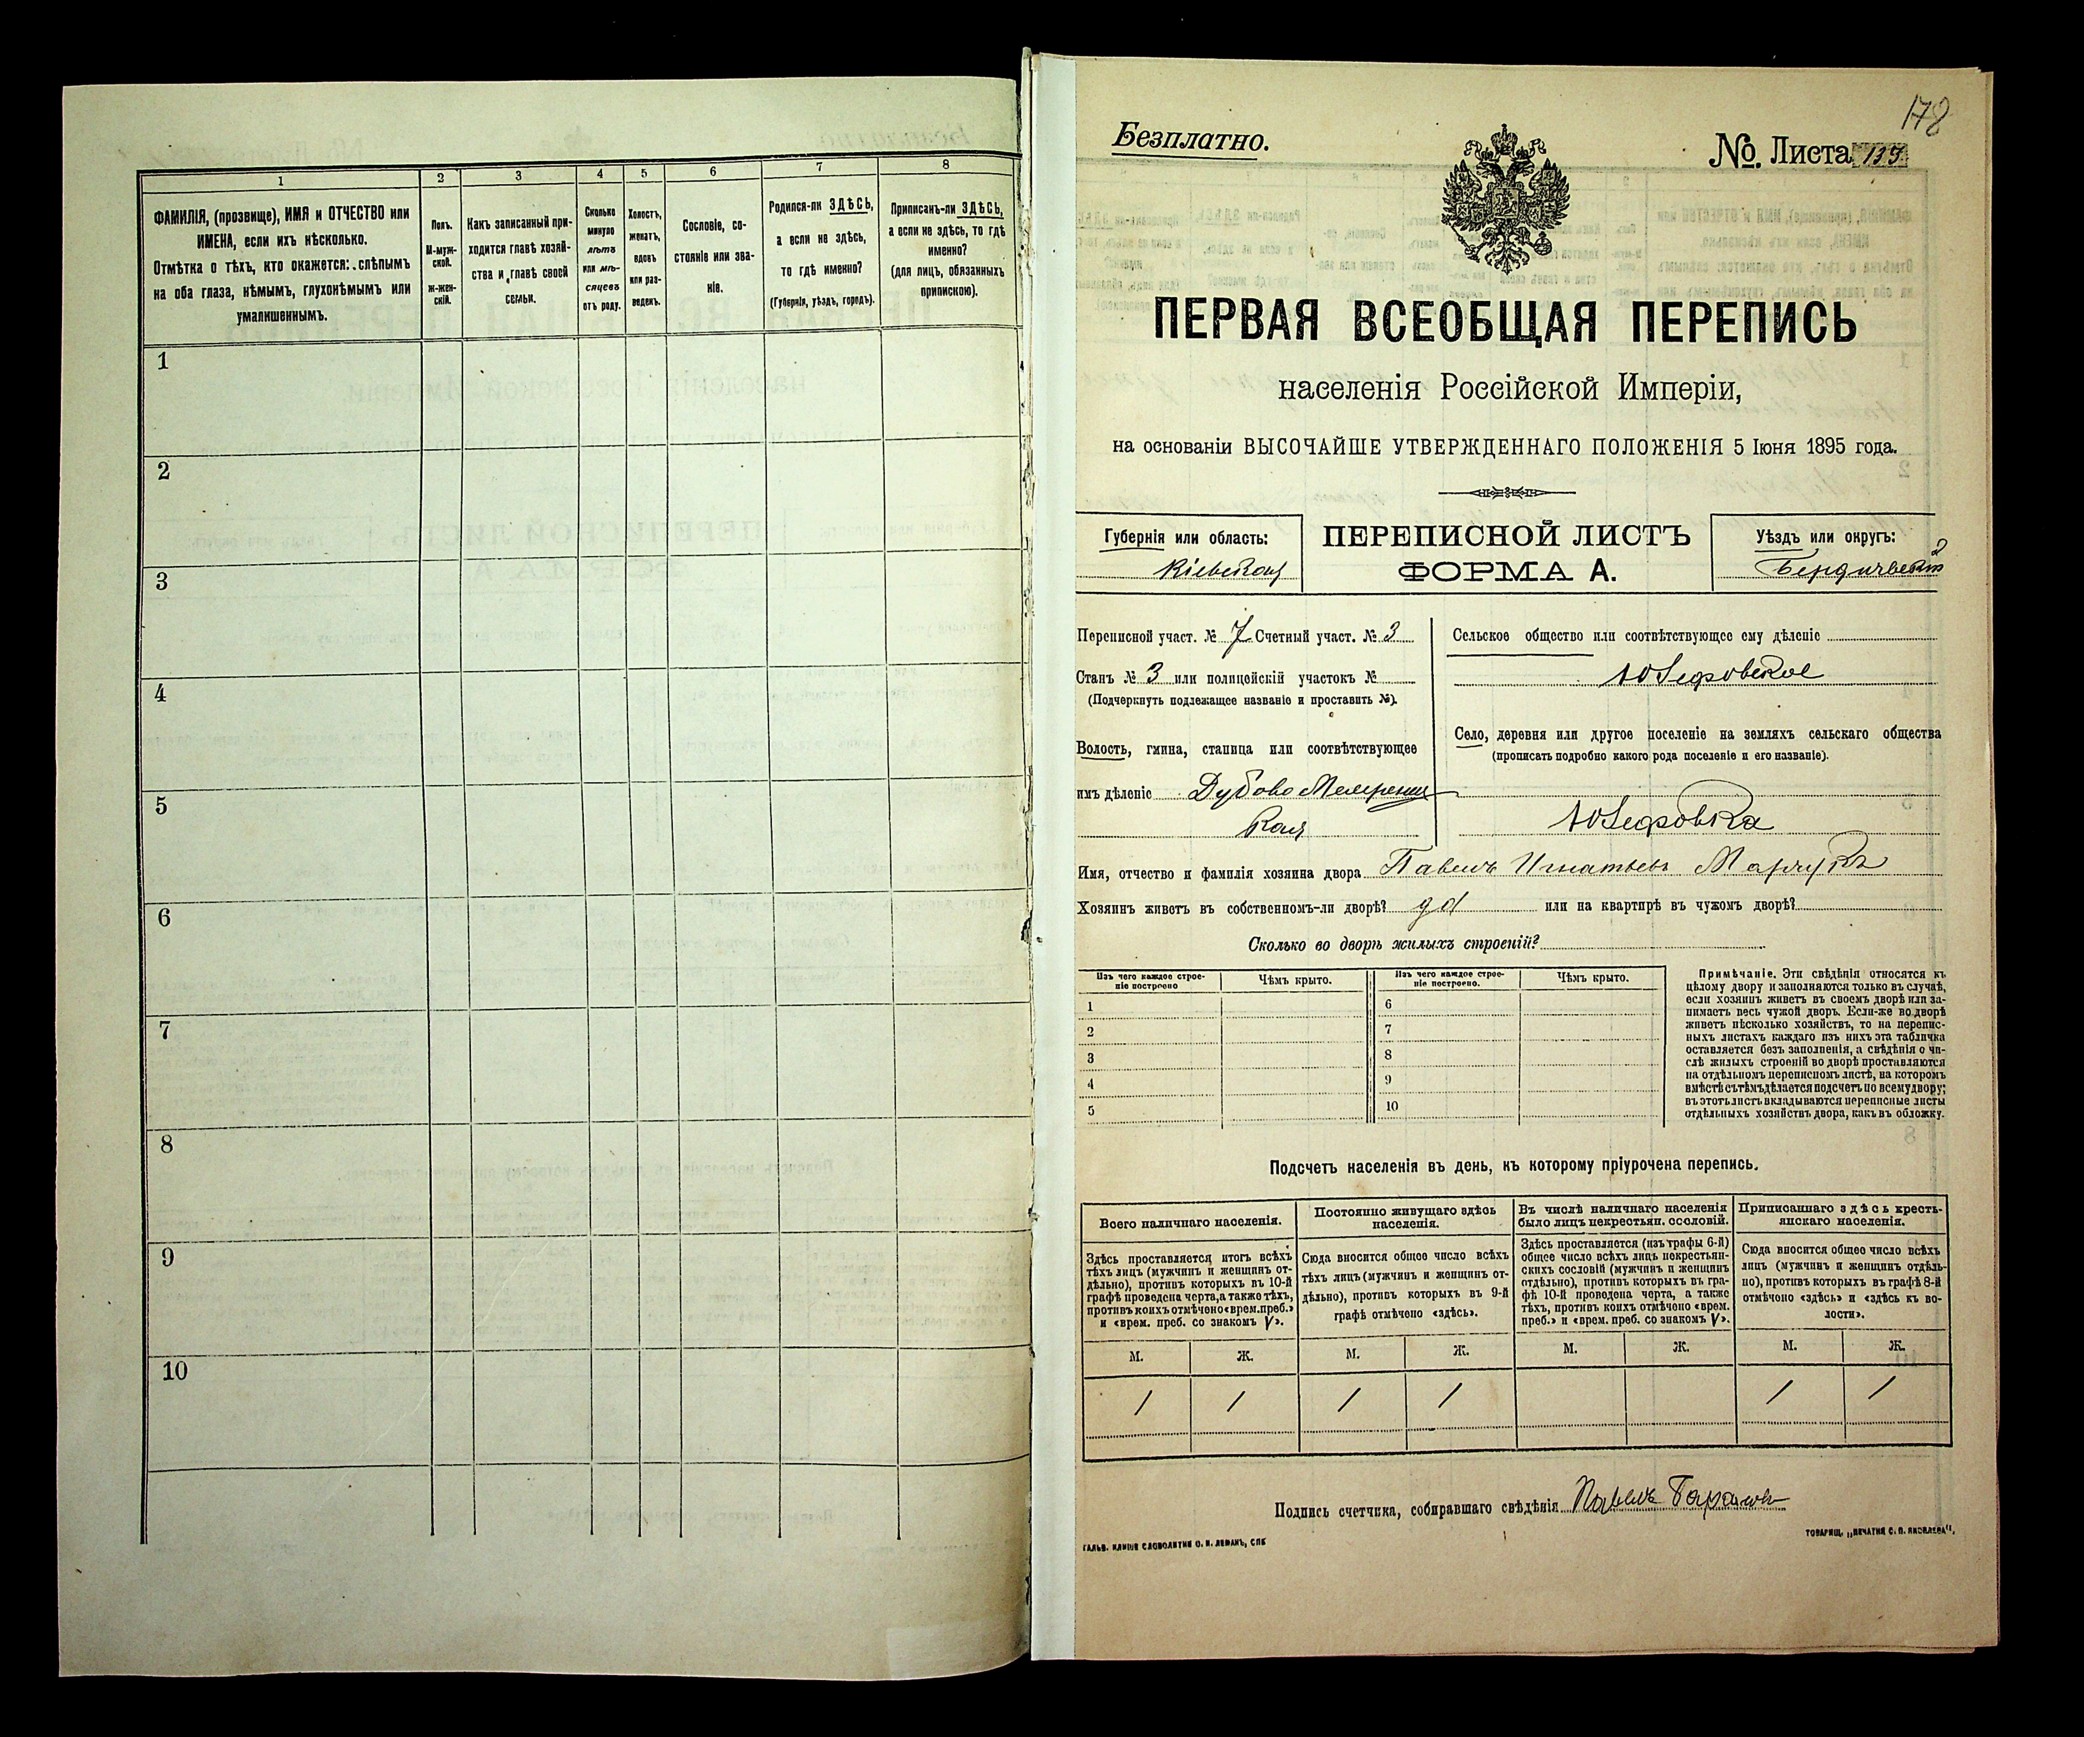 1
2
3
4
5
6
7
8
ФАМИЛІЯ, (прозвище), ИМЯ и ОТЧЕСТВО или
ИМЕНА, если ихъ нѣсколько.
Отмѣтка о тѣхъ, кто окажется: слѣпымъ
на оба глаза, нѣмымъ, глухонѣмымъ или
умалишеннымъ.
Полъ.
М-муж-
ской.
ж-жен-
скій.
Какъ записанный при-
ходится главѣ хозяй-
ства и главѣ своей
семьи.
Сколько
минуло
лѣтъ
или мѣ-
сяцевъ
отъ роду.
Холостъ,
женатъ,
вдовъ
или раз-
веденъ.
Сословіе, со-
стояніе или зва-
ніе.
Родился-ли ЗДѢСЬ,
а если не здѣсь,
то гдѣ именно?
(Губернія, уѣздъ, городъ).
Приписанъ-ли ЗДѢСЬ,
а если не здѣсь, то гдѣ
именно?
(для лицъ, обязанныхъ
припискою).
1
2
3
4
5
6
7
8
9
10
178
Безплатно.
№. Листа
ПЕРВАЯ ВСЕОБЩАЯ ПЕРЕПИСЬ
населенія Россійской Имперіи,
на основаніи ВЫСОЧАЙШЕ УТВЕРЖДЕННАГО ПОЛОЖЕНІЯ 5 Іюня 1895 года.
Губернія или область:
Кіевская
ПЕРЕПИСНОЙ ЛИСТЪ
ФОРМА А.
Уѣздъ или округъ:
Бердичевскій
Переписной участ. № 7 Счетный участ. № 3
Станъ № 3 или полицейскій участокъ №
(Подчеркнуть подлежащее названіе и проставить №).
Волость, гмина, станица или соотвѣтствующее
имъ дѣленіе Дубово Махаринец
кая
Сельское общество или соотвѣтствующее ему дѣленіе
Юзефовское
Село, деревня или другое поселеніе на земляхъ сельскаго общества
(прописать подробно какого рода поселеніе и его названіе).
Юзефовка
Имя, отчество и фамилія хозяина двора Павелъ Игнатьевъ Марчукъ
Хозяинъ живетъ въ собственномъ-ли дворѣ? да или на квартирѣ въ чужомъ дворѣ?
Сколько во дворѣ жилыхъ строеній?
Изъ чего каждое строе-
ніе построено
Чѣмъ крыто.
Изъ чего каждое строе-
ніе построено.
Чѣмъ крыто.
1
2
3
4
5
6
7
8
9
10
Примѣчаніе. Эти свѣдѣнія относятся къ
цѣлому двору и заполняются только въ случаѣ,
если хозяинъ живетъ въ своемъ дворѣ или за-
нимаетъ весь чужой дворъ. Если-же во дворѣ
живетъ нѣсколько хозяйствъ, то на перепис-
ныхъ листахъ каждаго изъ нихъ эта табличка
оставляется безъ заполненія, а свѣдѣнія о чи-
слѣ жилыхъ строеній во дворѣ проставляются
на отдѣльномъ переписномъ листѣ, на которомъ
вмѣстѣ съ тѣмъ дѣлается подсчетъ по всему двору;
въ этотъ листъ вкладываются переписные листы
отдѣльныхъ хозяйствъ двора, какъ въ обложку.
Подсчетъ населенія въ день, къ которому пріурочена перепись.
Всего наличнаго населенія.
Постоянно живущаго здѣсь
населенія.
Въ числѣ наличнаго населенія
было лицъ некрестьян. сословій.
Приписаннаго здѣсь кресть-
янскаго населенія.
Здѣсь проставляется итогъ всѣхъ
тѣхъ лицъ (мужчинъ и женщинъ от-
дѣльно), противъ которыхъ въ 10-й
графѣ проведена черта, а также тѣхъ,
противъ коихъ отмѣчено «врем. преб.»
и «врем. преб. со знакомъ V».
Сюда вносится общее число всѣхъ
тѣхъ лицъ (мужчинъ и женщинъ от-
дѣльно), противъ которыхъ въ 9-й
графѣ отмѣчено «здѣсь».
Здѣсь проставляется (изъ графы 6-й)
общее число всѣхъ лицъ некрестьян-
скихъ сословій (мужчинъ и женщинъ
отдѣльно), противъ которыхъ въ гра-
фѣ 10-й проведена черта, а также
тѣхъ, противъ коихъ отмѣчено «врем.
преб.» и «врем. преб. со знакомъ V».
Сюда вносится общее число всѣхъ
лицъ (мужчинъ и женщинъ отдѣль-
но), противъ которыхъ въ графѣ 8-й
отмѣчено «здѣсь» и «здѣсь къ во-
лости».
М. Ж. М. Ж. М. Ж. М. Ж.
1 1 1 1 1 1
Подпись счетчика, собиравшаго свѣдѣнія Павелъ
ГАЛЬВ. КЛИШЕ СЛОВОЛИТНИ О. И. ЛЕМАНЪ, СПБ
ТОВАРИЩ. „ПЕЧАТНЯ С. П. ЯКОВЛЕВА".